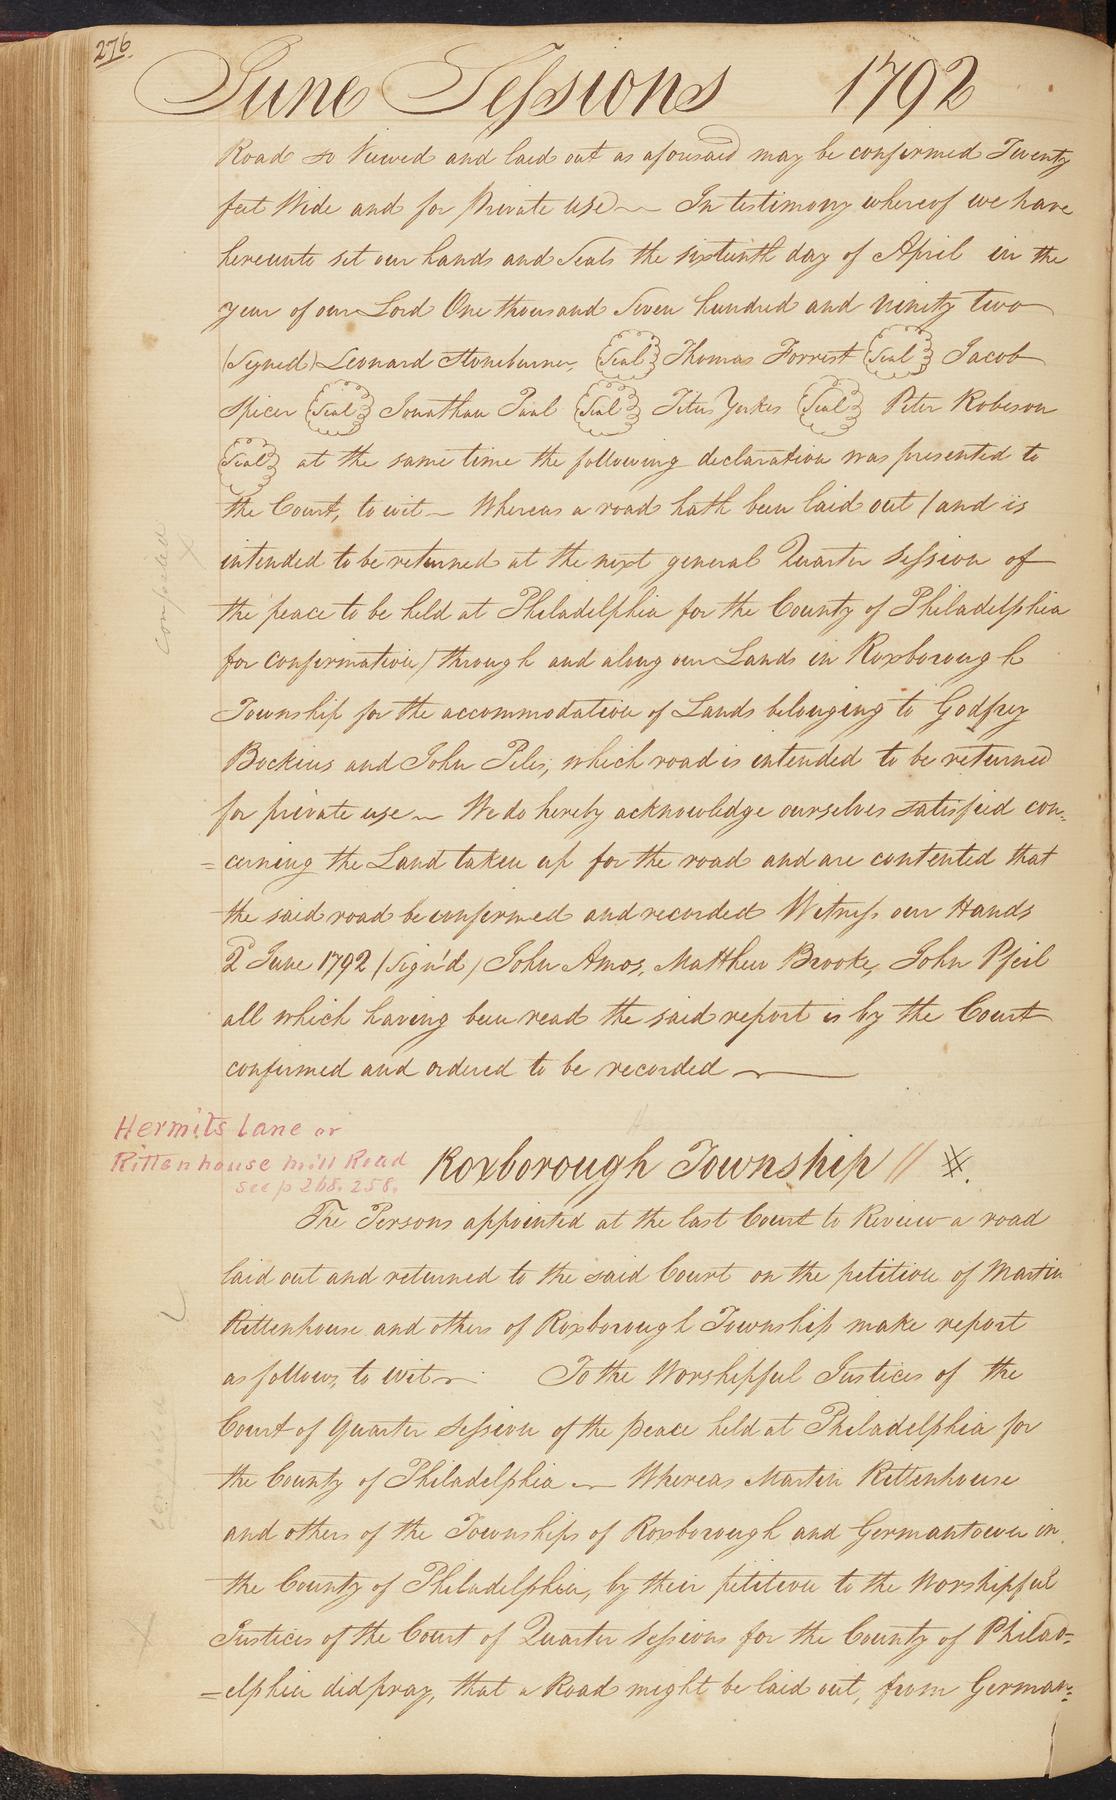 276.
June Sessions 1792
Road so Viewed and laid out as aforesaid may be confirmed Twenty
feet Wide and for Private use — In testimony whereof we have
hereunto set our hands and Seals the sixteenth day of April in the
year of our Lord One thousand Seven hundred and ninety two
(Signed) Leonard Stoneburner, Seal Thomas Forrest Seal Jacob
Spicer Seal Jonathan Paul Seal Titus Yerkes Seal Peter Robeson
Seal at the same time the following declaration was presented to
the Court, to wit — Whereas a road hath been laid out (and is
intended to be returned at the next general Quarter Session of
the peace to be held at Philadelphia for the County of Philadelphia
for confirmation) through and along our Lands in Roxborough
Township for the accommodation of Lands belonging to Godfrey
Bockius and John Piles, which road is intended to be returned
for private use — We do hereby acknowledge ourselves satisfied con=
=cerning the Land taken up for the road and are contented that
the said road be confirmed and recorded Witness our Hands
2d June 1792 (Sign'd) John Amos, Matthew Brooke, John Pfeil
all which having been read the said report is by the Court
confirmed and ordered to be recorded —
compared
Hermits Lane or
Rittenhouse Mill Road
see p 268. 258.
Roxborough Township //
The Persons appointed at the last Court to Review a road
laid out and returned to the said Court on the petition of Martin
Rittenhouse and others of Roxborough Township make report
as follows, to wit — To the Worshipful Justices of the
Court of Quarter Session of the peace held at Philadelphia for
the County of Philadelphia — Whereas Martin Rittenhouse
and others of the Townships of Roxborough and Germantown in
the County of Philadelphia, by their petition to the Worshipful
Justices of the Court of Quarter Sessions for the County of Philad=
=elphia did pray, that a Road might be laid out, from German=
compared